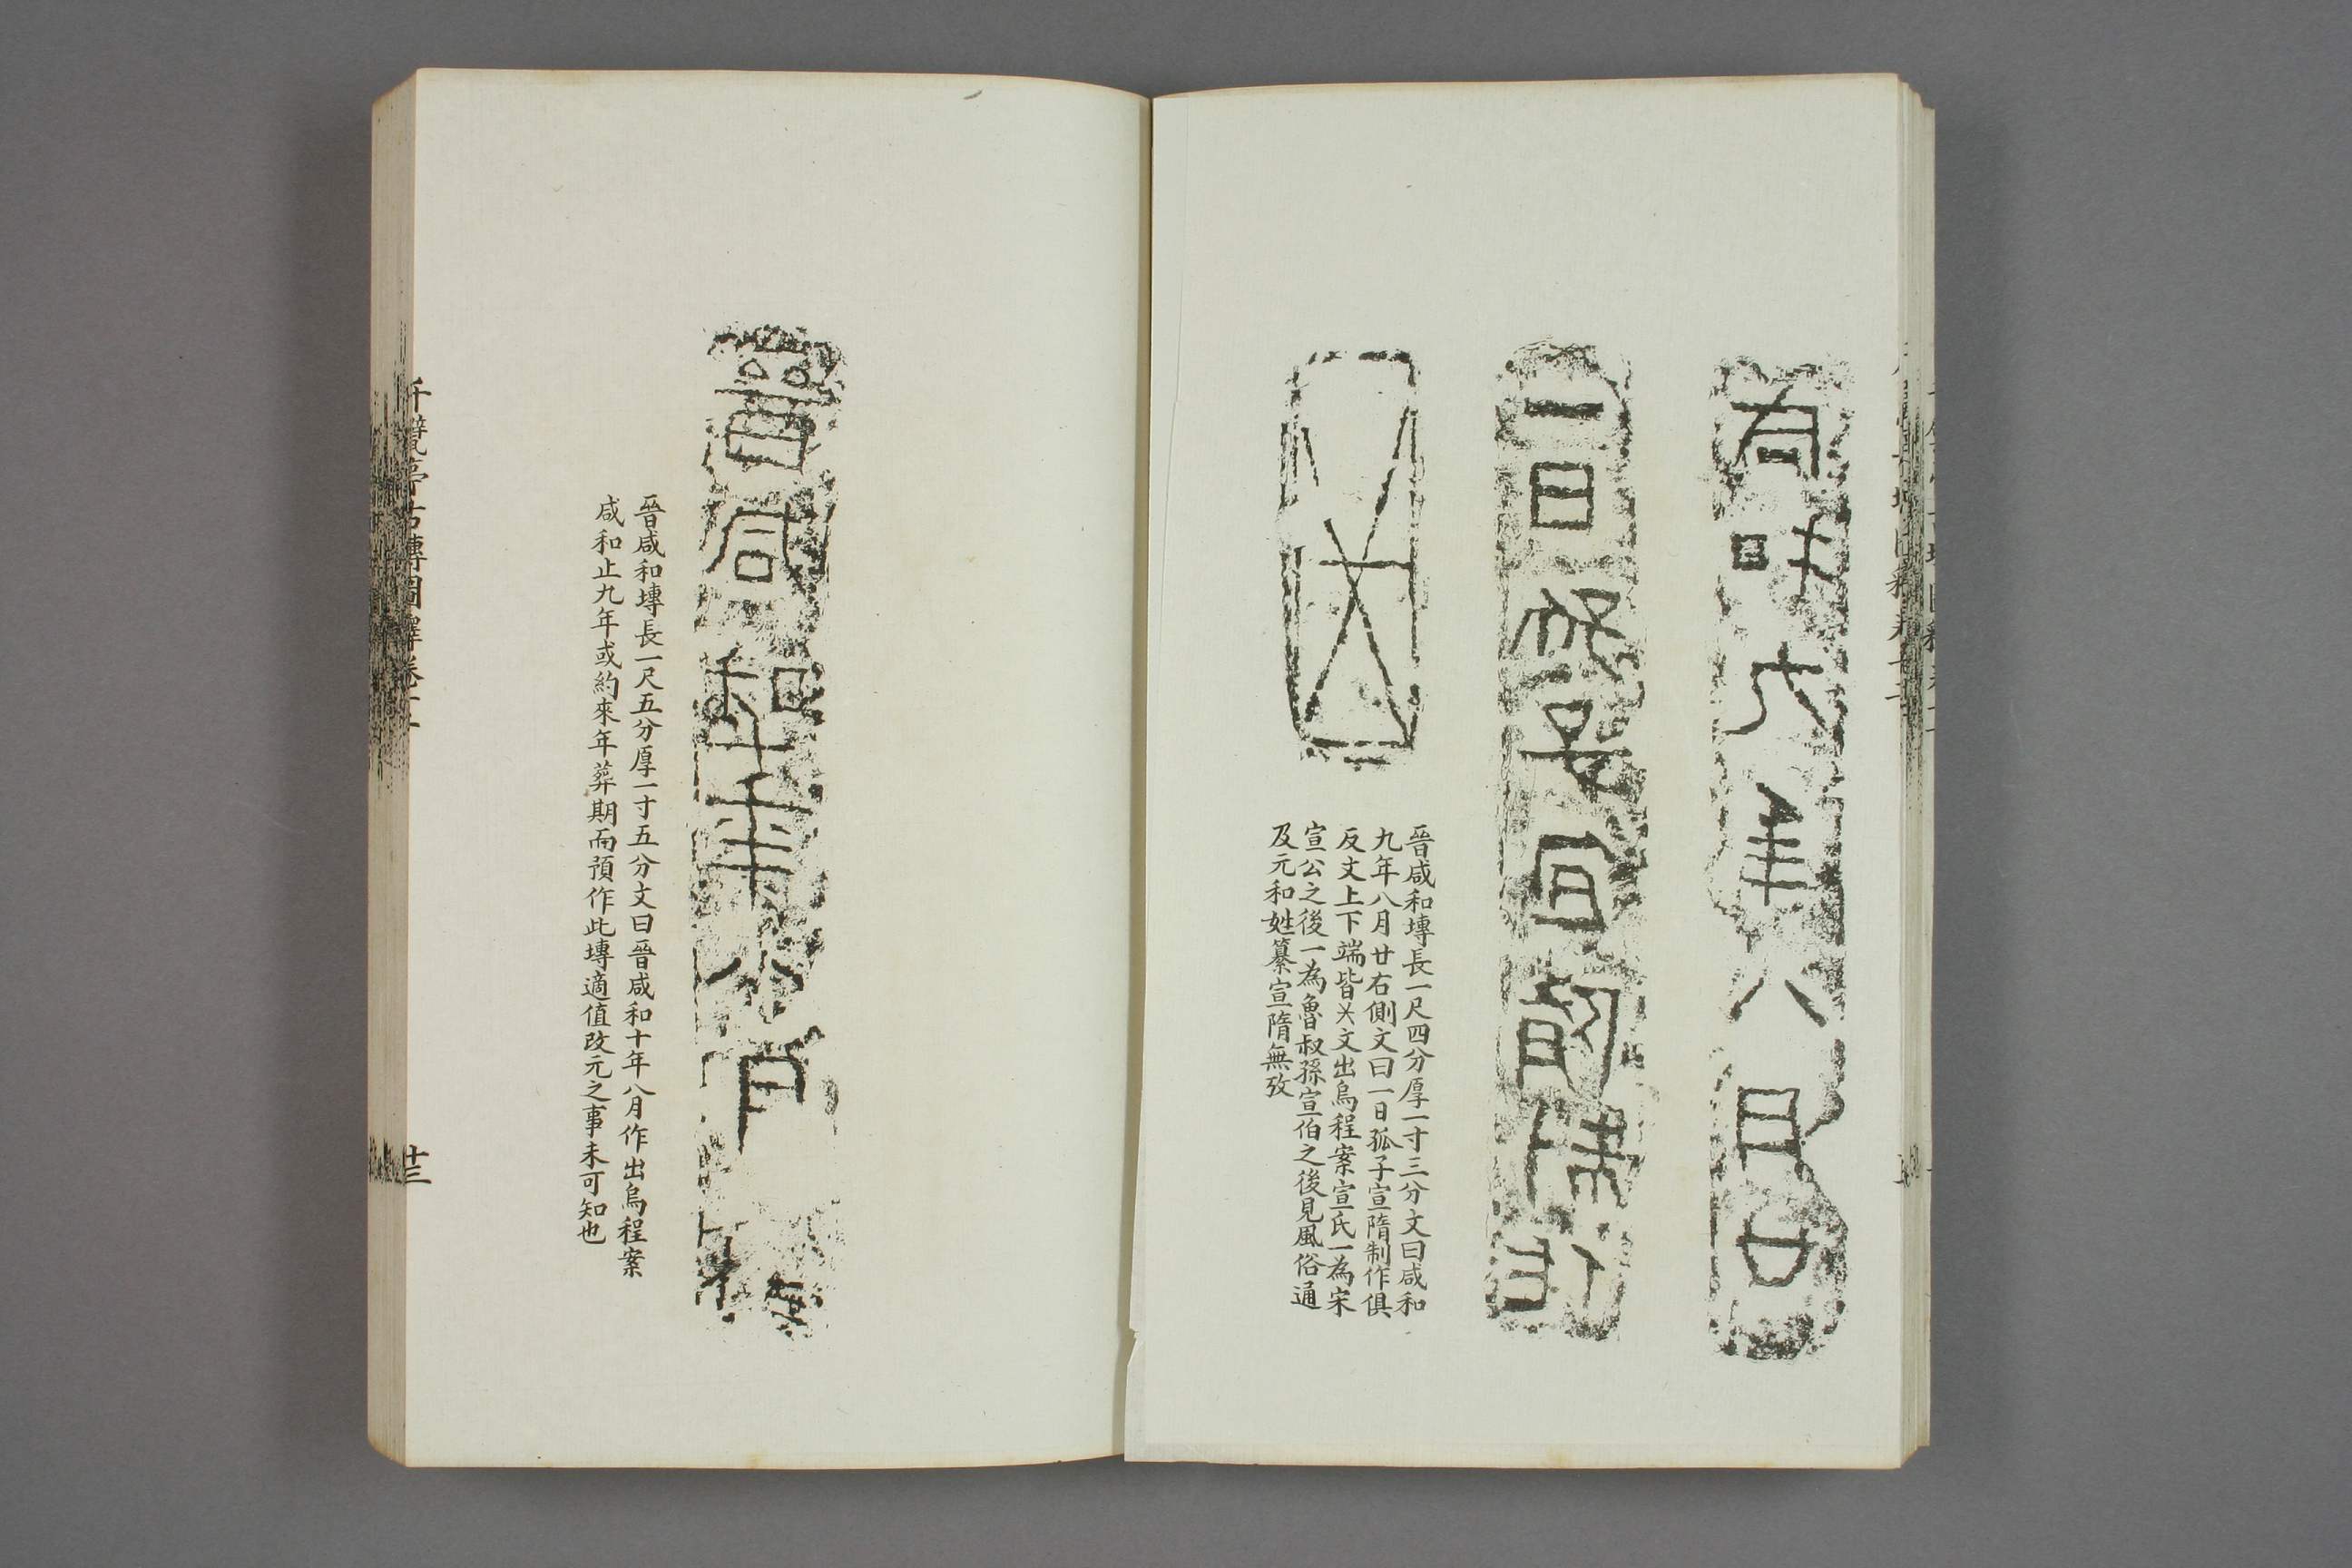 咸和九年八月廿
一日孤子宣隋制作
晉咸和塼長一尺四分厚一寸三分文曰咸和
九年八月廿右側文曰一日孤子宣隋制作俱
反文上下端皆㐅文出烏程案宣氏一為宋
宣公之後一為魯叔孫宣伯之後見風俗通
及元和姓纂宣隋無攷
晉咸和十年八月作
晉咸和塼長一尺五分厚一寸五分文曰晉咸和十年八月作出烏程案
咸和止九年或約來年葬期而預作此塼適值改元之事未可知也
千甓亭古塼圖釋卷十一
廿三